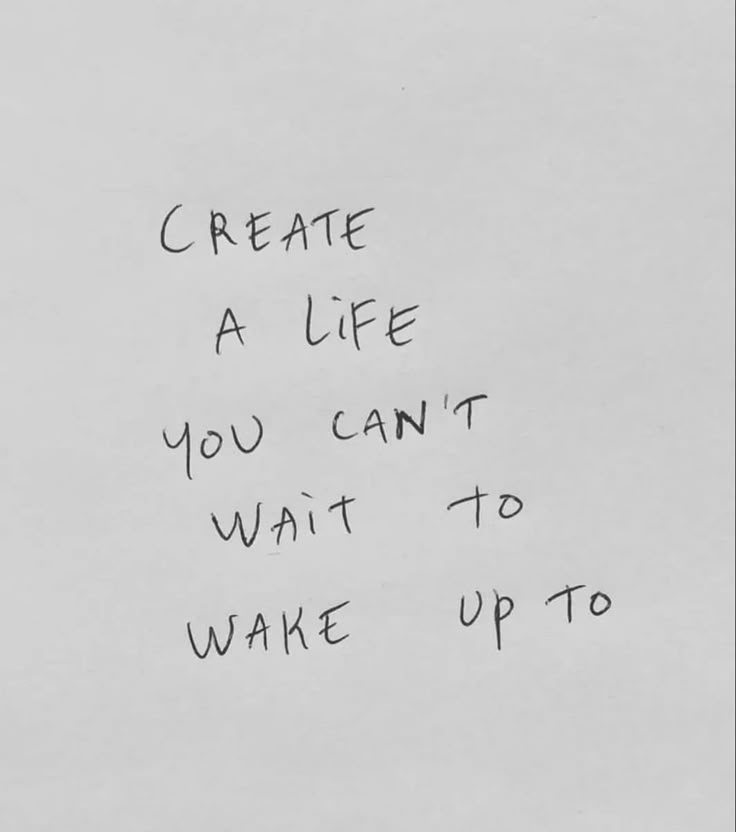 CREATE
A LiFE
YOU CAN'T
WAit to
WAKE Up TO